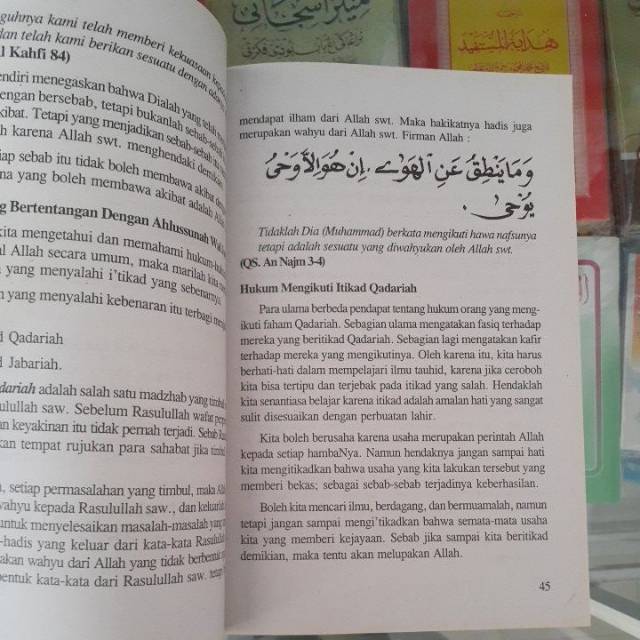 guhnya kami telah memberi kekuasaan
dan telah kami berikan sesuatu dengan
l Kahfi 84)
endiri menegaskan bahwa Dialah yang telah
engan bersebab, tetapi bukanlah sebab-sebab
kibat. Tetapi yang menjadikan sebab-sebab itu
h karena Allah swt. menghendaki demikian
iap sebab itu tidak boleh membawa akibat dengan
na yang boleh membawa akibat adalah Allah
g Bertentangan Dengan Ahlussunah Wal
kita mengetahui dan memahami hukum-hukum
al Allah secara umum, maka marilah kita
n yang menyalahi i'tikad yang sebenarnya.
n yang menyalahi kebenaran itu terbagi menjadi
d Qadariah
d Jabariah.
dariah adalah salah satu madzhab yang timbul
ulullah saw. Sebelum Rasulullah wafat
an keyakinan itu tidak pernah terjadi. Sebab
kan tempat rujukan para sahabat jika timbul
n, setiap permasalahan yang timbul, maka
wahyu kepada Rasulullah saw., dan keluarlah
untuk menyelesaikan masalah-masalah yang
-hadis yang keluar dari kata-kata Rasulullah
akan wahyu dari Allah yang tidak berbentuk
entuk kata-kata dari Rasulullah saw. tetapi
هداية المستفيد
mendapat ilham dari Allah swt. Maka hakikatnya hadis juga
merupakan wahyu dari Allah swt. Firman Allah :
وَمَا يَنْطِقُ عَنِ الْهَوٰى. اِنْ هُوَ اِلَّا وَحْيٌ
يُوْحٰى.
Tidaklah Dia (Muhammad) berkata mengikuti hawa nafsunya
tetapi adalah sesuatu yang diwahyukan oleh Allah swt.
(QS. An Najm 3-4)
Hukum Mengikuti Itikad Qadariah
Para ulama berbeda pendapat tentang hukum orang yang meng-
ikuti faham Qadariah. Sebagian ulama mengatakan fasiq terhadap
mereka yang beritikad Qadariah. Sebagian lagi mengatakan kafir
terhadap mereka yang mengikutinya. Oleh karena itu, kita harus
berhati-hati dalam mempelajari ilmu tauhid, karena jika ceroboh
kita bisa tertipu dan terjebak pada itikad yang salah. Hendaklah
kita senantiasa belajar karena itikad adalah amalan hati yang sangat
sulit disesuaikan dengan perbuatan lahir.
Kita boleh berusaha karena usaha merupakan perintah Allah
kepada setiap hambaNya. Namun hendaknya jangan sampai hati
kita mengitikadkan bahwa usaha yang kita lakukan tersebut yang
memberi bekas; sebagai sebab-sebab terjadinya keberhasilan.
Boleh kita mencari ilmu, berdagang, dan bermuamalah, namun
tetapi jangan sampai mengi'tikadkan bahwa semata-mata usaha
kita yang memberi kejayaan. Sebab jika sampai kita beritikad
demikian, maka tentu akan melupakan Allah.
45